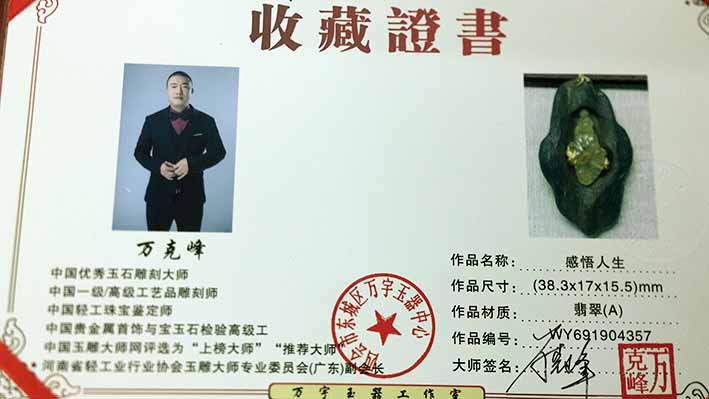 收藏證書
万克峰
中国优秀玉石雕刻大师
中国一级/高级工艺品雕刻师
中国轻工珠宝鉴定师
中国贵金属首饰与宝玉石检验高级工
中国玉雕大师网评选为“上榜大师”“推荐大师”
河南省轻工业行业协会玉雕大师专业委员会(广东)副会长
四会市东城区万宇玉器中心
作品名称： 感悟人生
作品尺寸： (38.3x17x15.5)mm
作品材质： 翡翠(A)
作品编号： WY691904357
大师签名：
万克峰
万宇玉器工作室